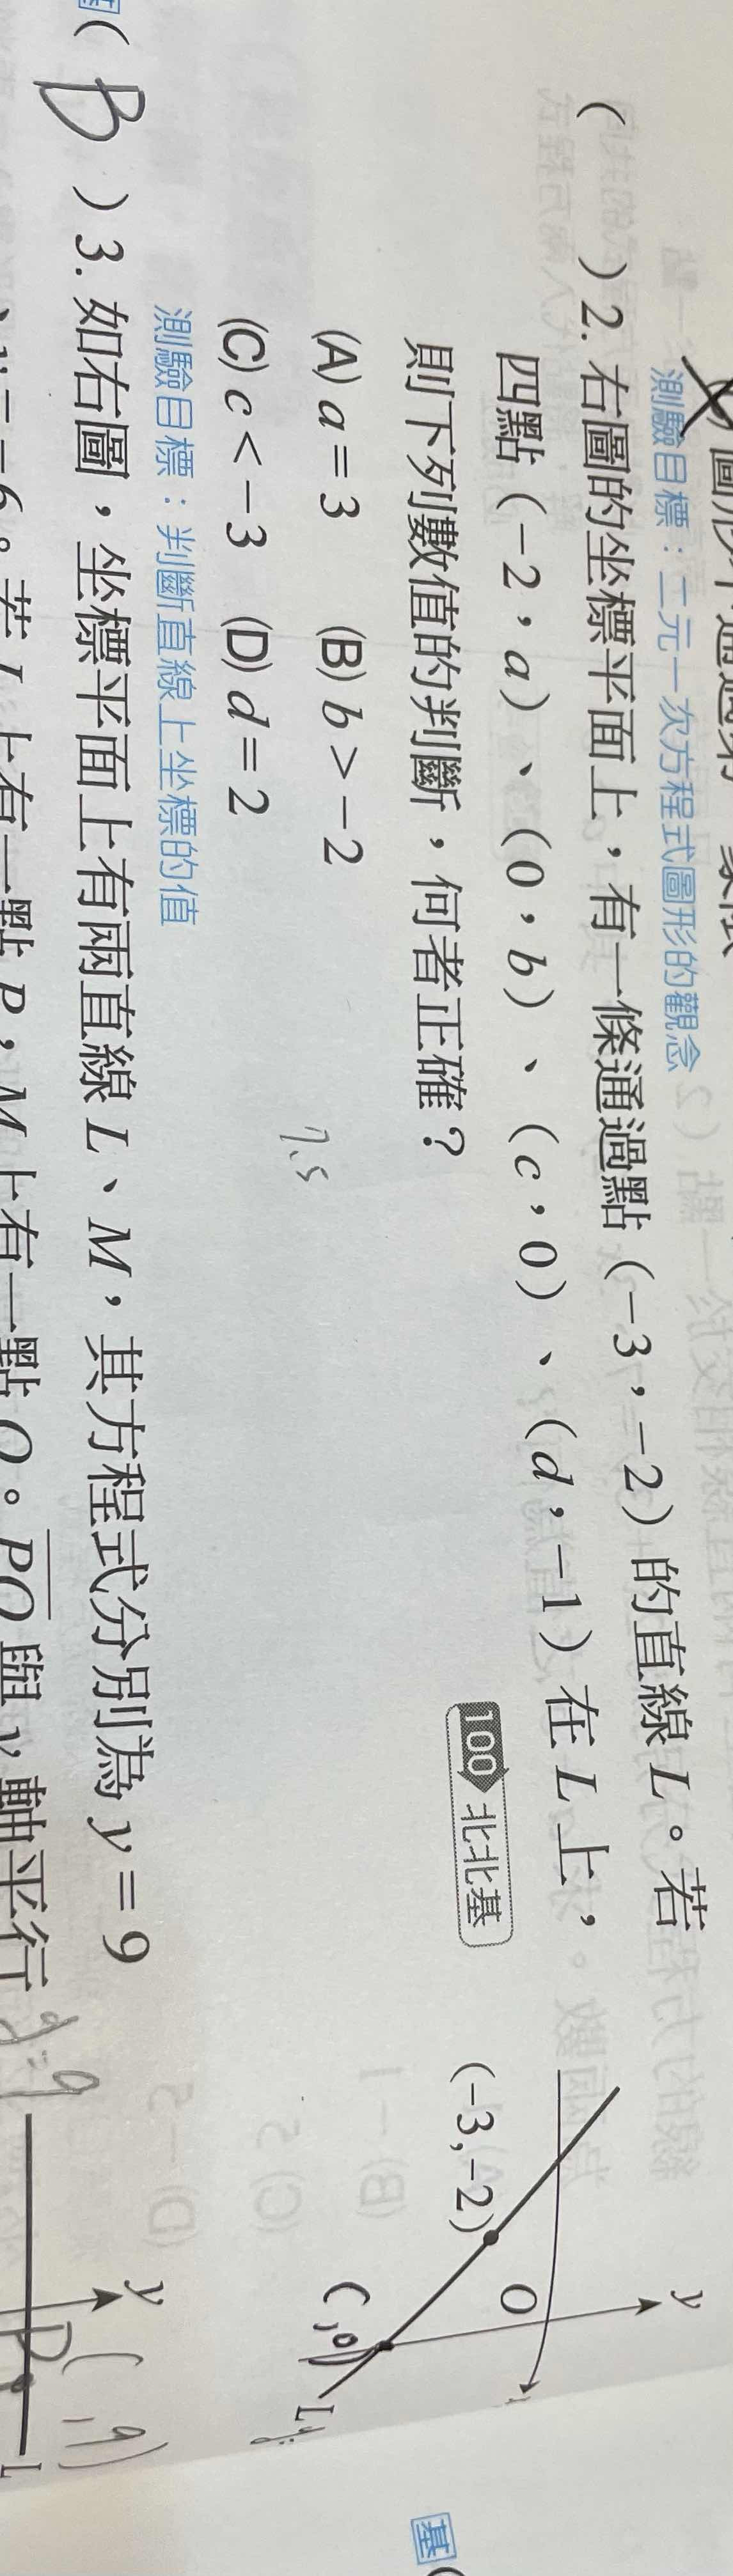 測驗目標：二元一次方程式圖形的觀念
(  ) 2. 右圖的坐標平面上，有一條通過點 (−3，−2) 的直線 L。若
四點 (−2，a)、(0，b)、(c，0)、(d，−1) 在 L 上，
則下列數值的判斷，何者正確？
100 北北基
(A) a = 3 (B) b > −2
(C) c < −3 (D) d = 2
y
O
(−3,−2)
( ,0)
L
7.5
測驗目標：判斷直線上坐標的值
( B ) 3. 如右圖，坐標平面上有兩直線 L、M，其方程式分別為 y = 9
、y = −6。若 L 上有一點 P，M 上有一點 Q。PQ 與 y 軸平行
y=9
y
( ,9)
P
L
基